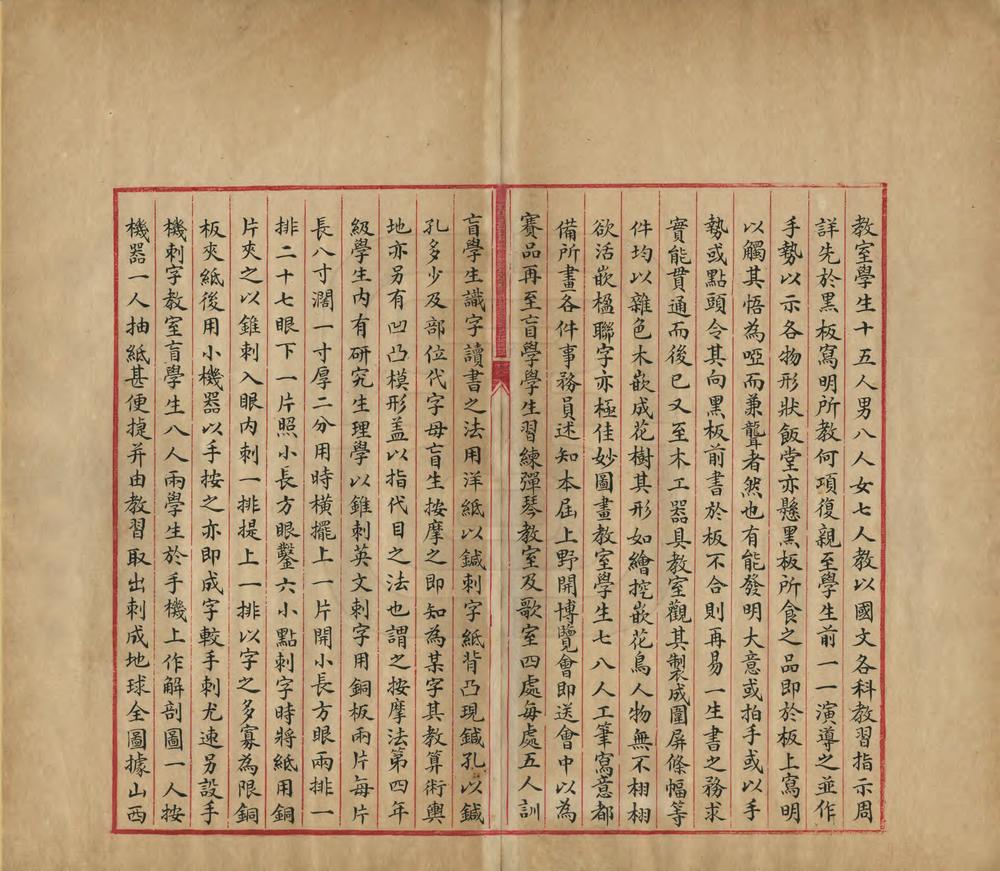 教室學生十五人男八人女七人教以國文各科教習指示周
詳先於黑板寫明所教何項復親至學生前一一演導之並作
手勢以示各物形狀飯堂亦懸黑板所食之品即於板上寫明
以觸其悟為啞而兼聾者然也有能發明大意或拍手或以手
勢或點頭令其向黑板前書於板不合則再易一生書之務求
實能貫通而後已又至木工器具教室觀其製成圍屏條幅等
件均以雜色木嵌成花樹其形如繪挖嵌花鳥人物無不栩栩
欲活嵌楹聯字亦極佳妙圖畫教室學生七八人工筆寫意都
備所畫各件事務員述知本屆上野開博覽會即送會中以為
賽品再至盲學學生習練彈琴教室及歌室四處每處五人訓
盲學生識字讀書之法用洋紙以鍼刺字紙背凸現鍼孔以鍼
孔多少及部位代字母盲生按摩之即知為某字其教算術輿
地亦另有凹凸模形盖以指代目之法也謂之按摩法第四年
級學生內有研究生理學以錐刺英文刺字用銅板兩片每片
長八寸濶一寸厚二分用時橫擺上一片開小長方眼兩排一
排二十七眼下一片照小長方眼鑿六小點刺字時將紙用銅
片夾之以錐刺入眼內刺一排提上一排以字之多寡為限銅
板夾紙後用小機器以手按之亦即成字較手刺尤速另設手
機刺字教室盲學生八人兩學生於手機上作解剖圖一人按
機器一人抽紙甚便捷并由教習取出刺成地球全圖據山西